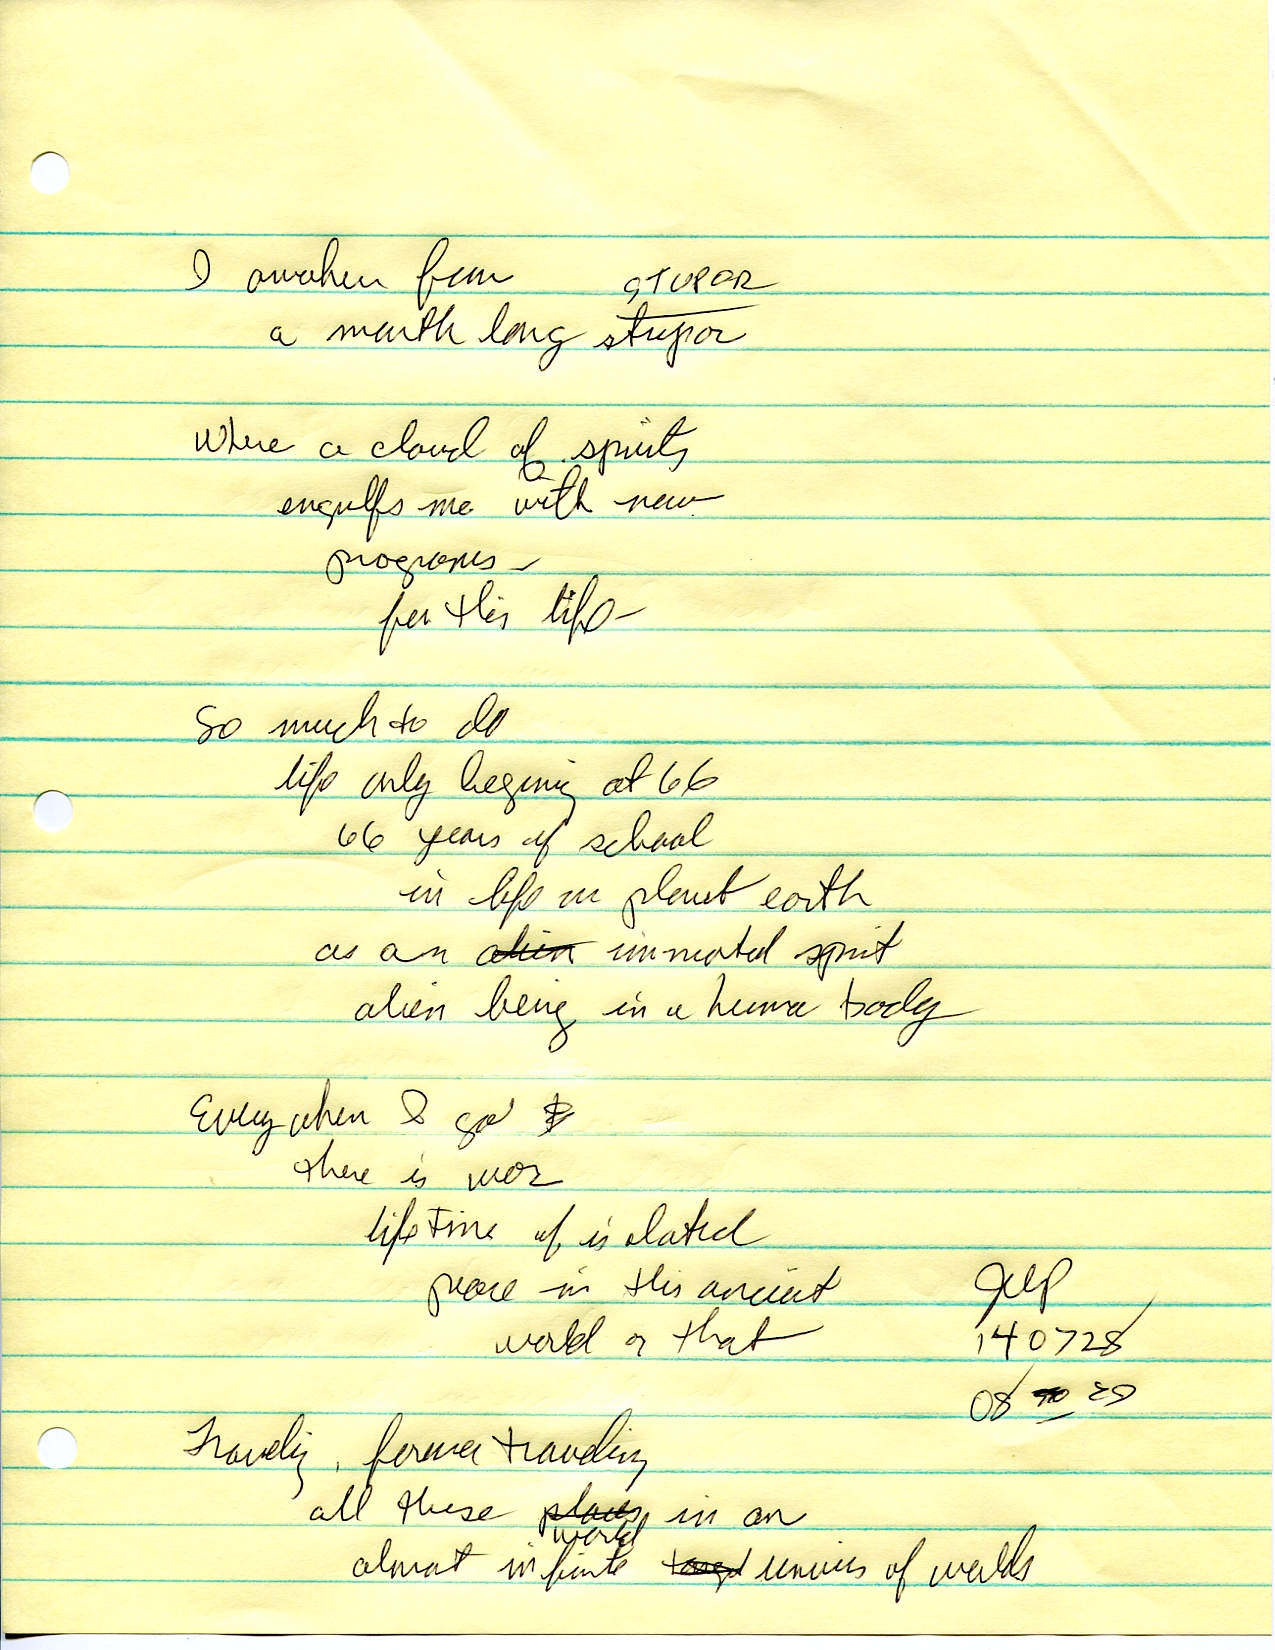 I awaken from STUPOR
a month long stupor
Where a cloud of spirits
engulfs me with new
programs -
for this life -
So much to do
life only begining at 66
66 years of school
in life on planet earth
as an alien immortal spirit
alien being in a human body
Everywhere I go
there is war
life time of isolated
peace in this ancient
world or that
JMP
140728
08 20
Traveling, forever traveling
all these places in an
world
almost infinite univers of worlds